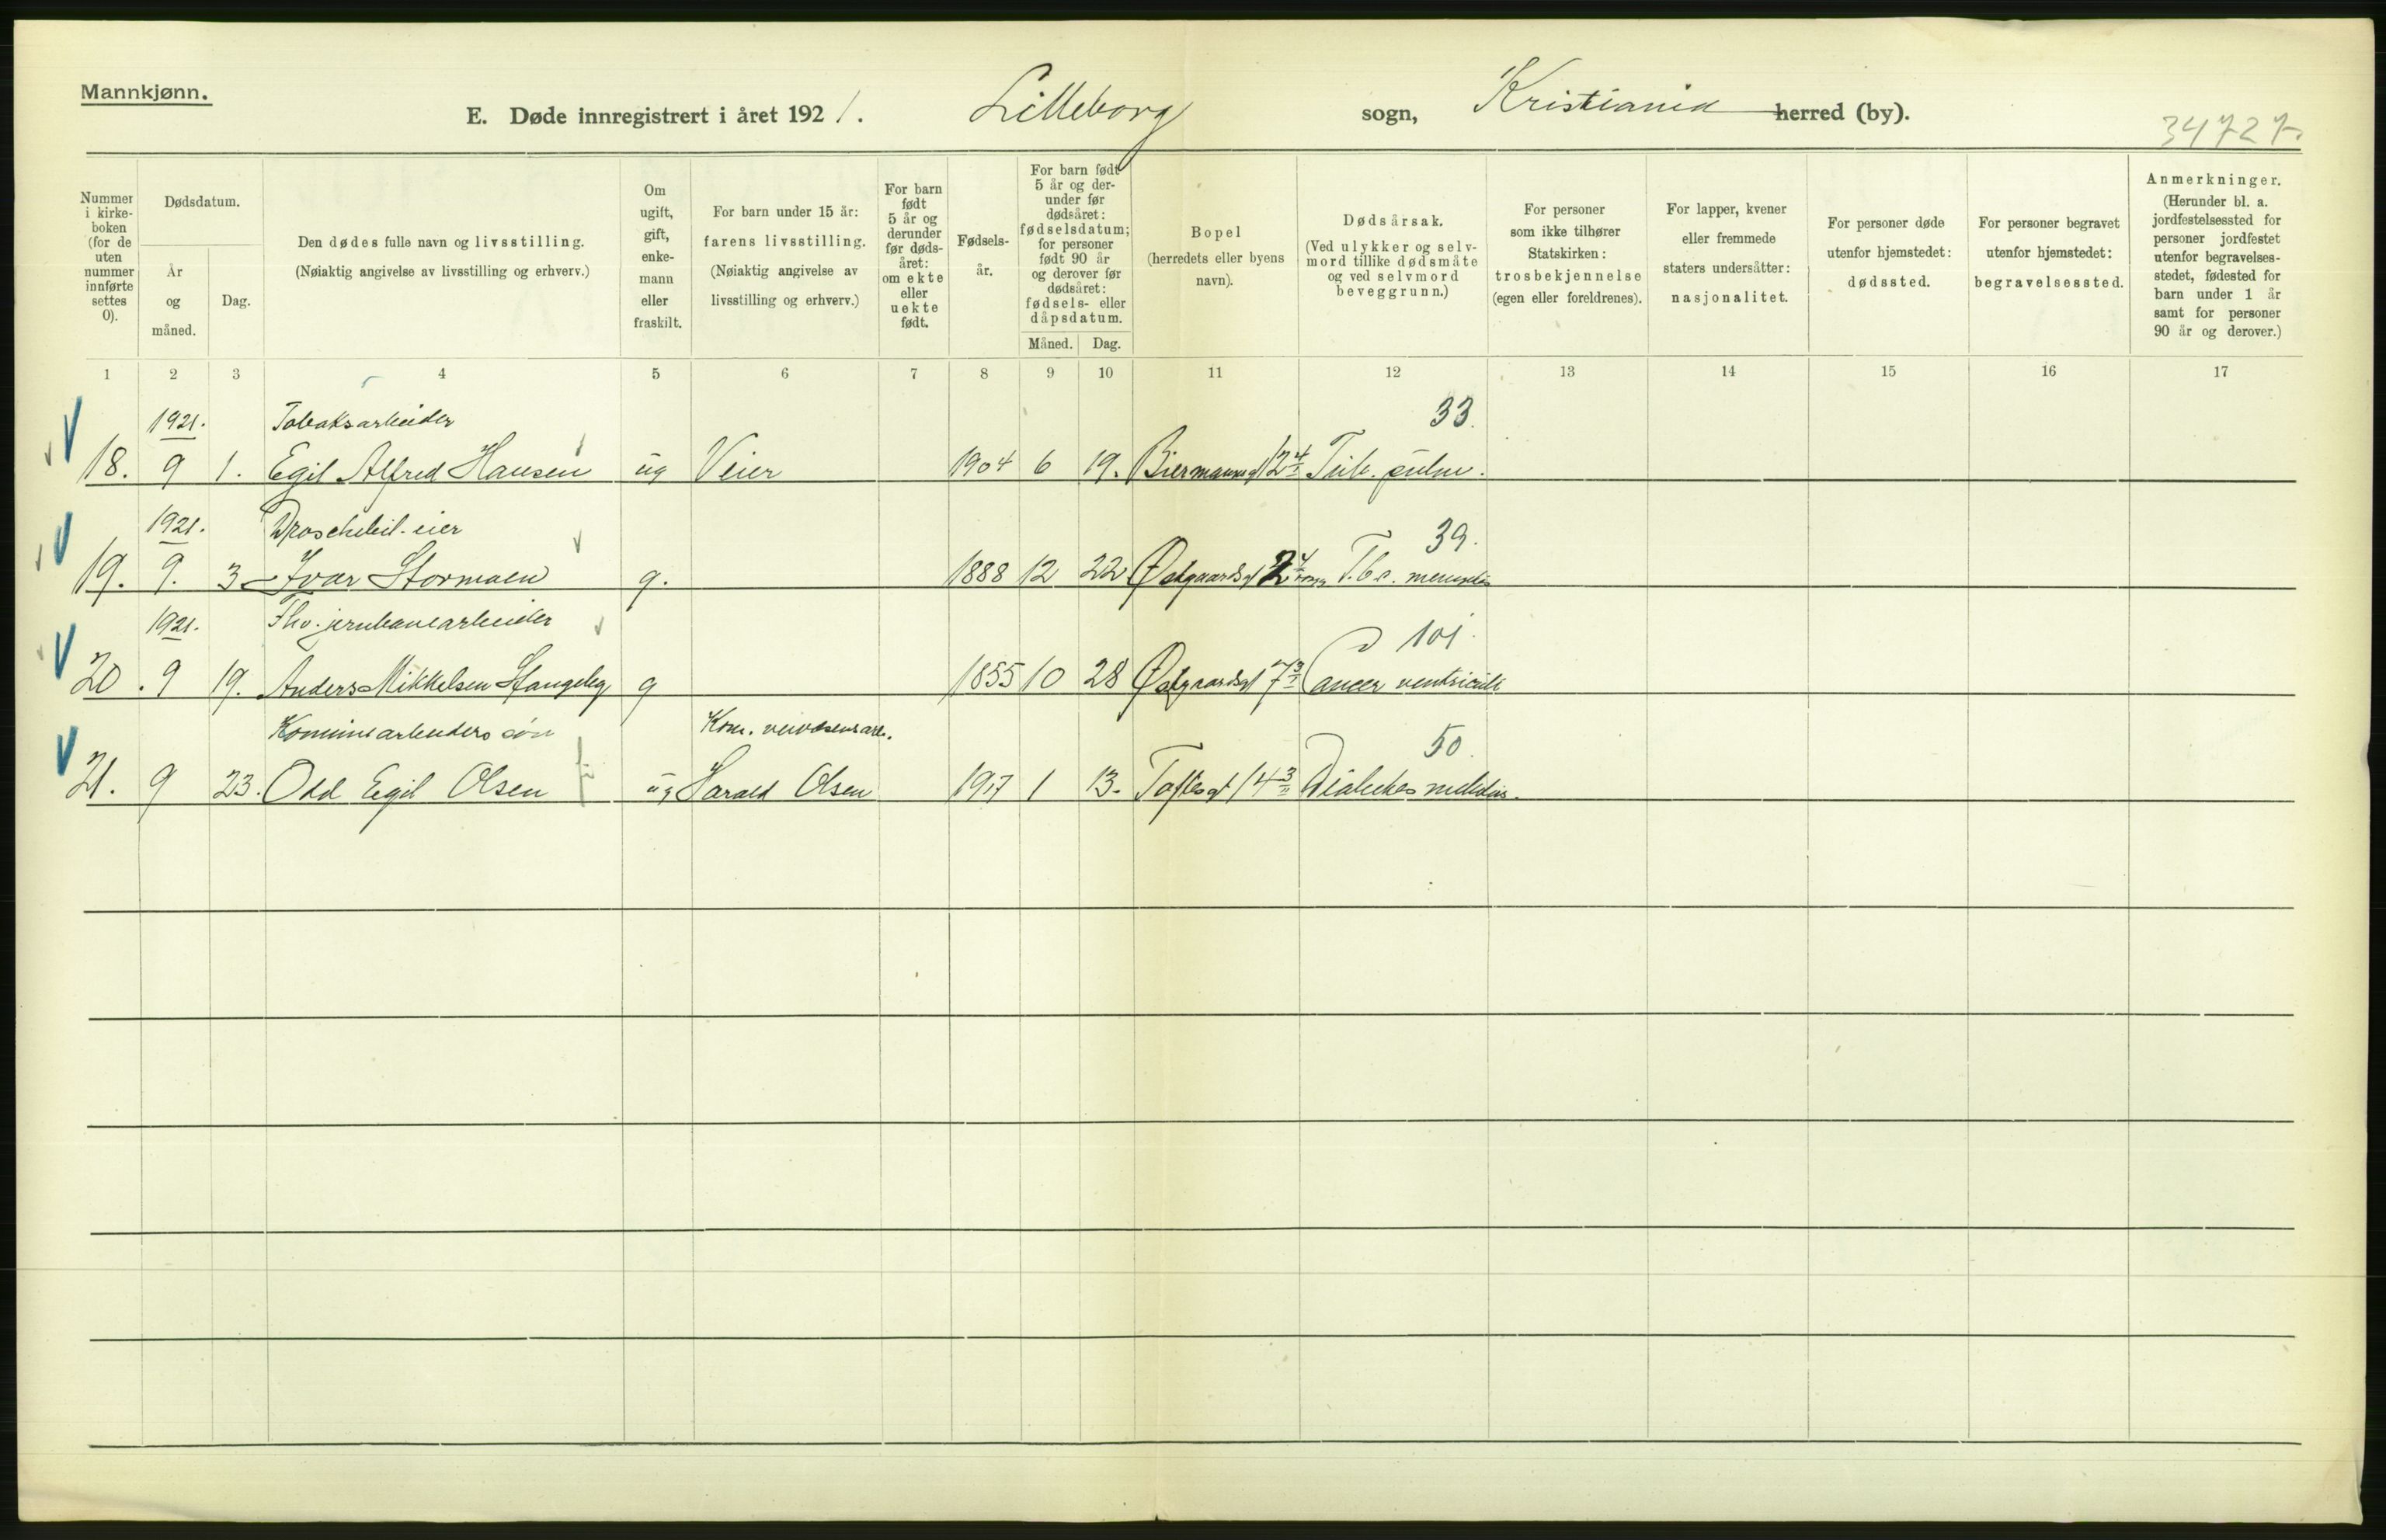 Mannkjønn.
E. Døde innregistrert i året 1921. Lilleborg sogn, Kristiania herred (by).
34727
Nummer i kirke-boken (for de uten nummer innførte settes 0).
Dødsdatum.
År og måned.
Dag.
Den dødes fulle navn og livsstilling.
(Nøiaktig angivelse av livsstilling og erhverv.)
Om ugift, gift, enke-mann eller fraskilt.
For barn under 15 år: farens livsstilling.
(Nøiaktig angivelse av livsstilling og erhverv.)
For barn født 5 år og derunder før døds-året: om ekte eller uekte født.
Fødsels-år.
For barn født 5 år og der-under før dødsåret: fødselsdatum; for personer født 90 år og derover før dødsåret: fødsels- eller dåpsdatum.
Måned. Dag.
Bopel
(herredets eller byens navn).
Dødsårsak.
(Ved ulykker og selv-mord tillike dødsmåte og ved selvmord beveggrunn.)
For personer som ikke tilhører Statskirken: trosbekjennelse (egen eller foreldrenes).
For lapper, kvener eller fremmede staters undersåtter: nasjonalitet.
For personer døde utenfor hjemstedet: dødssted.
For personer begravet utenfor hjemstedet: begravelsessted.
Anmerkninger.
(Herunder bl. a. jordfestelsessted for personer jordfestet utenfor begravelses-stedet, fødested for barn under 1 år samt for personer 90 år og derover.)
1 2 3 4 5 6 7 8 9 10 11 12 13 14 15 16 17
1921. Tobaksarbeider 33.
18. 9 1. Egil Alfred Hansen ug Veier 1904 6 19. Biermannsgt 12 4/I Tub. pulm.
1921. Droschebil.eier 39.
19. 9. 3 Ivar Stormoen g. 1888 12 22 Østgaardsgt 2 T.b.c. meninges
1921. Fhv. jernbanearbeider 101.
20. 9 19. Anders Mikkelsen Stangeby g 1855 10 28 Østgaardsgt 7 3/I Cancer ventriculi
Komunearbeiders søn Kom. veivesensarb. 50.
21. 9 23. Odd Egil Olsen ug Harald Olsen 1917 1 13. Toftesgt 14 3/II Diabetes melitus.